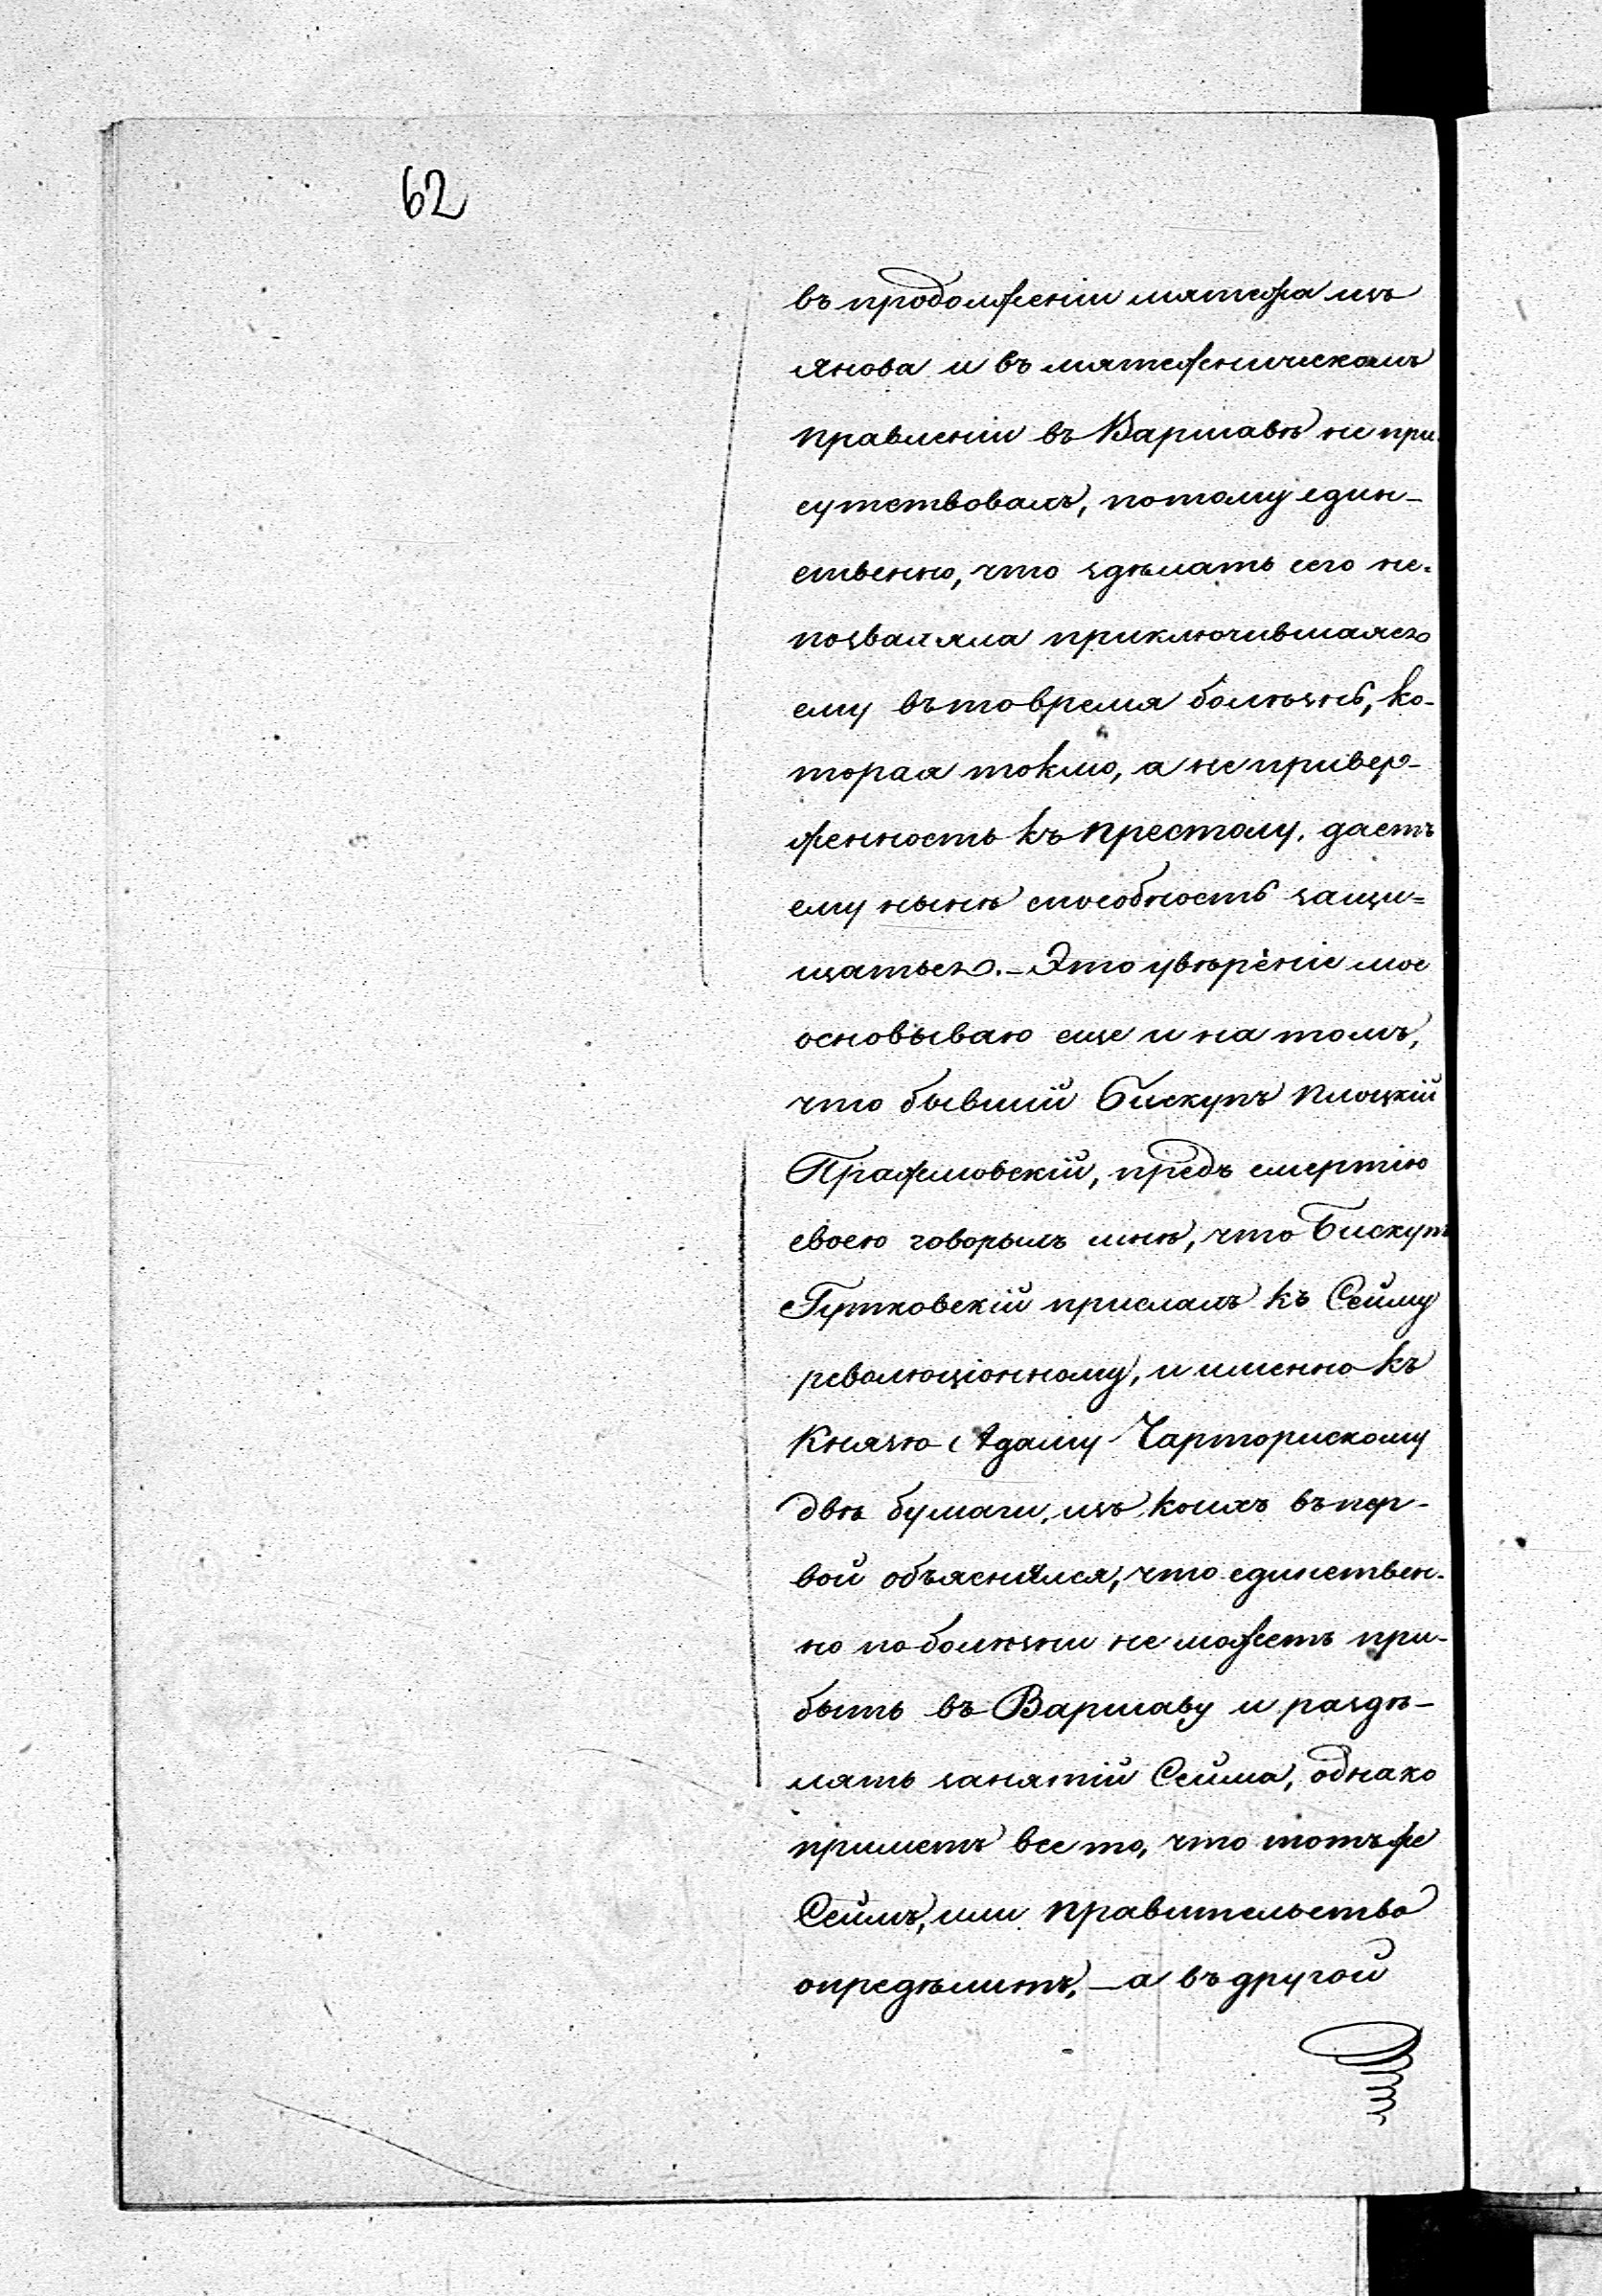 62
въ продолженіи мятежа изъ
Янова и въ мятежническомъ
правленіи въ Варшавѣ не при
сутствовалъ, потому един-
ственно, что здѣлать сего не-
позваляла приключившаяся
ему въ то время болѣзнь, ко-
торая токмо, а не привер-
женность къ престолу, даетъ
ему нынѣ способность защи=
щаться. – Это увѣреніе мое
основываю еще и на томъ,
что бывшій Бискупъ Плоцкій
Пражмовскій, предъ смертію
своею говорылъ мнѣ, что Бискупъ
Гутковскій прислалъ къ Сейму
революціонному, и именно къ
Князю Адаму Чарторискому
двѣ бумаги, изъ коихъ въ пер-
вой объяснялся, что единствен-
но по болѣзни не можетъ при-
быть въ Варшаву и раздѣ-
лять занятій Сейма, однако
приметъ все то, что тотъ же
Сеймъ, или правительство
опредѣлитъ, – а въ другой